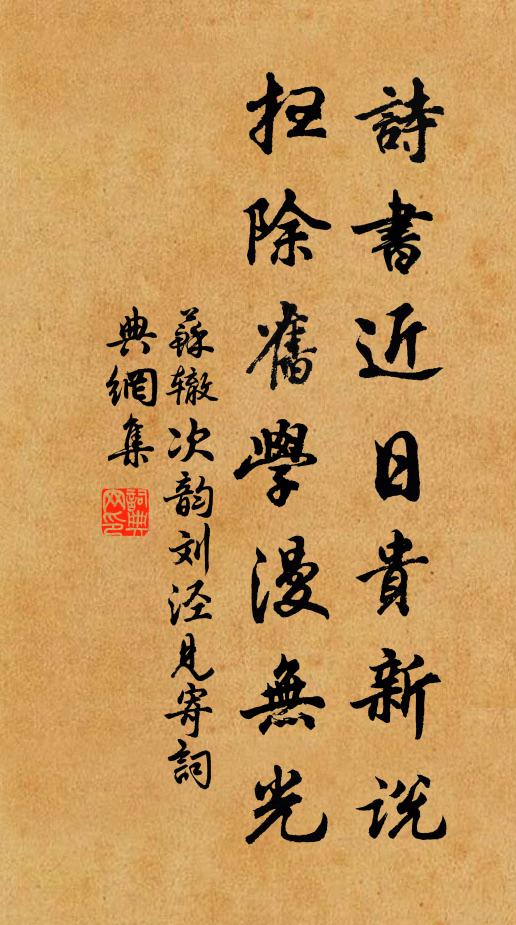 詩書近日貴新説
扫除舊學漫無光
蘇辙次韵刘泾見寄詞
典網集
詞典
网印